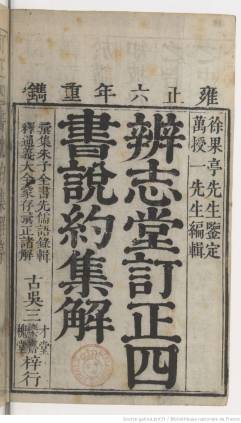 雍正六年重鐫
徐果亭先生鑑定
萬授一先生編輯
辨志堂訂正四
書說約集解
彙集朱子全書先儒語錄輯
釋通義大全蒙存彙正諸解
古吳三
才堂
樂堂
梓行
Source gallica.bnf.fr / Bibliothèque nationale de France